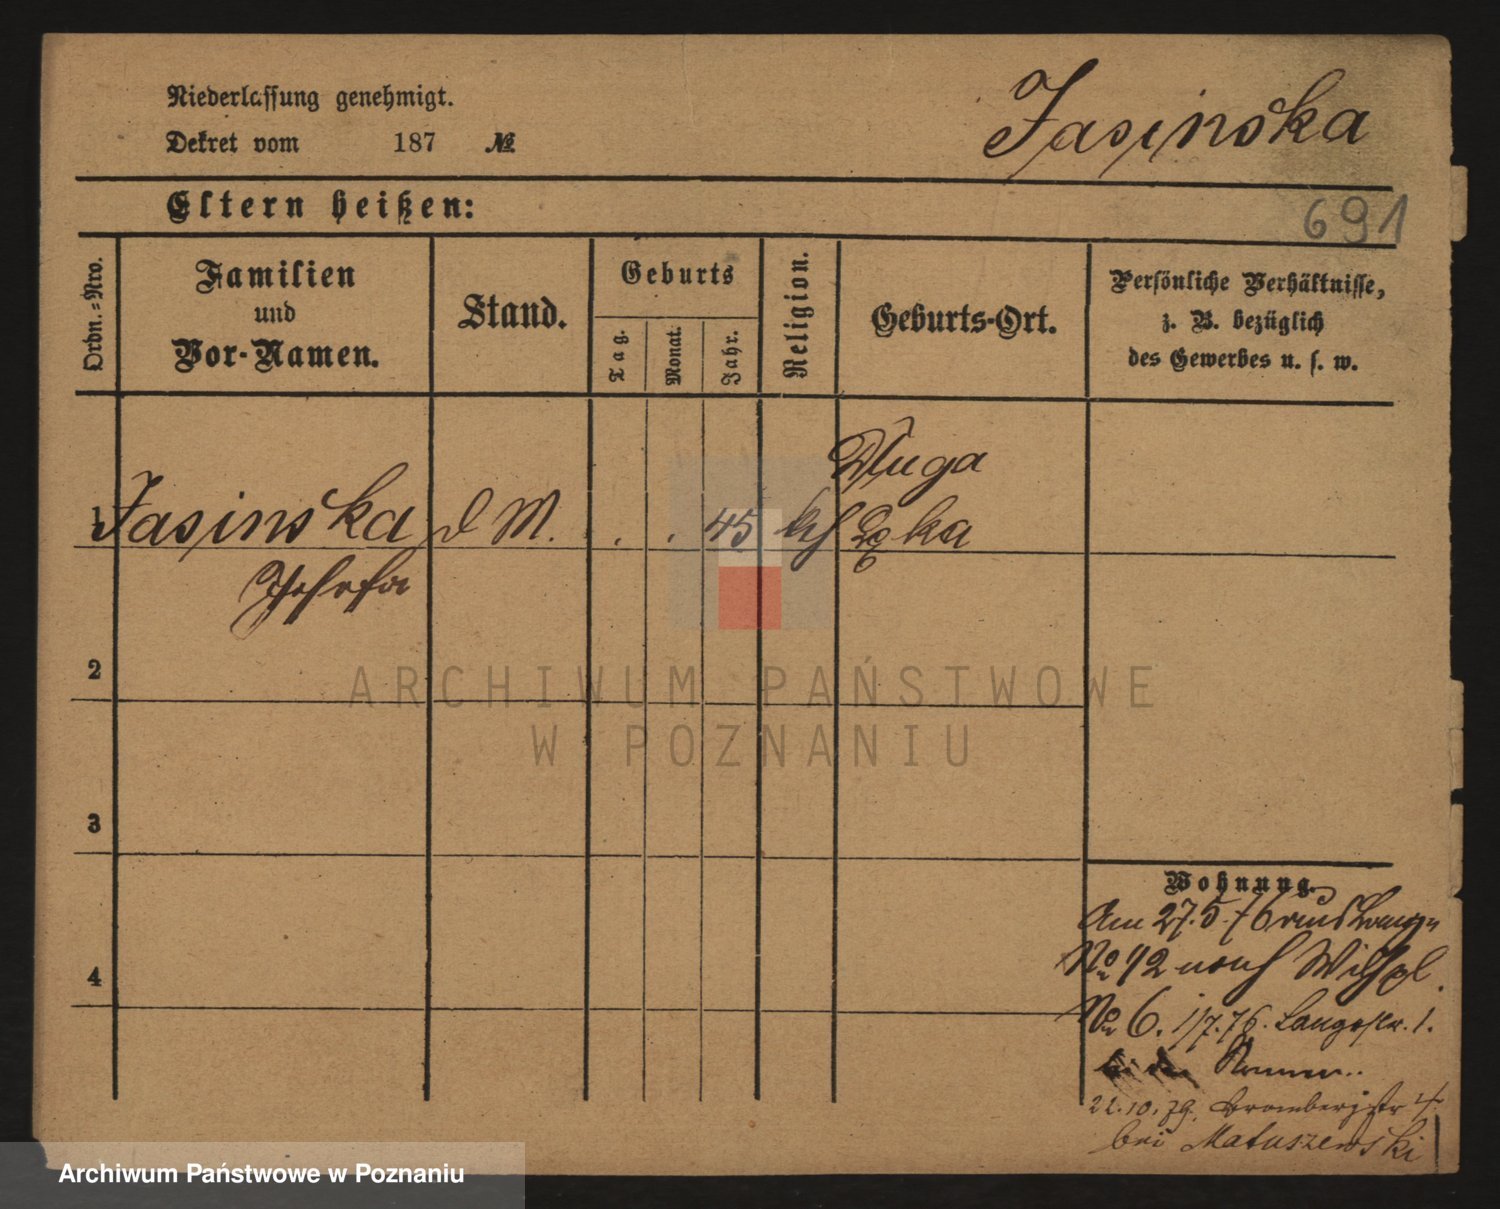 Niederlassung genehmigt.
Dekret vom 187 №
Jasinska
Eltern heißen:
691
Ordn.-Nro.
Familien
und
Vor-Namen.
Stand.
Geburts
Tag.
Monat.
Jahr.
Religion.
Geburts-Ort.
Persönliche Verhältnisse,
z. B. bezüglich
des Gewerbes u. s. w.
1 Jasinska d M. . . 45 kth
Josefa
Dluga
2
3
4
ARCHIWUM PAŃSTWOWE
W POZNANIU
Wohnung.
Am 27.5.76
No 12 nach Wilhpl.
No 6. 1/7.76. Langestr. 1.
bei den Nonnen.
22.10.79. Brombergstr 4.
bei Matuszewski
Archiwum Państwowe w Poznaniu